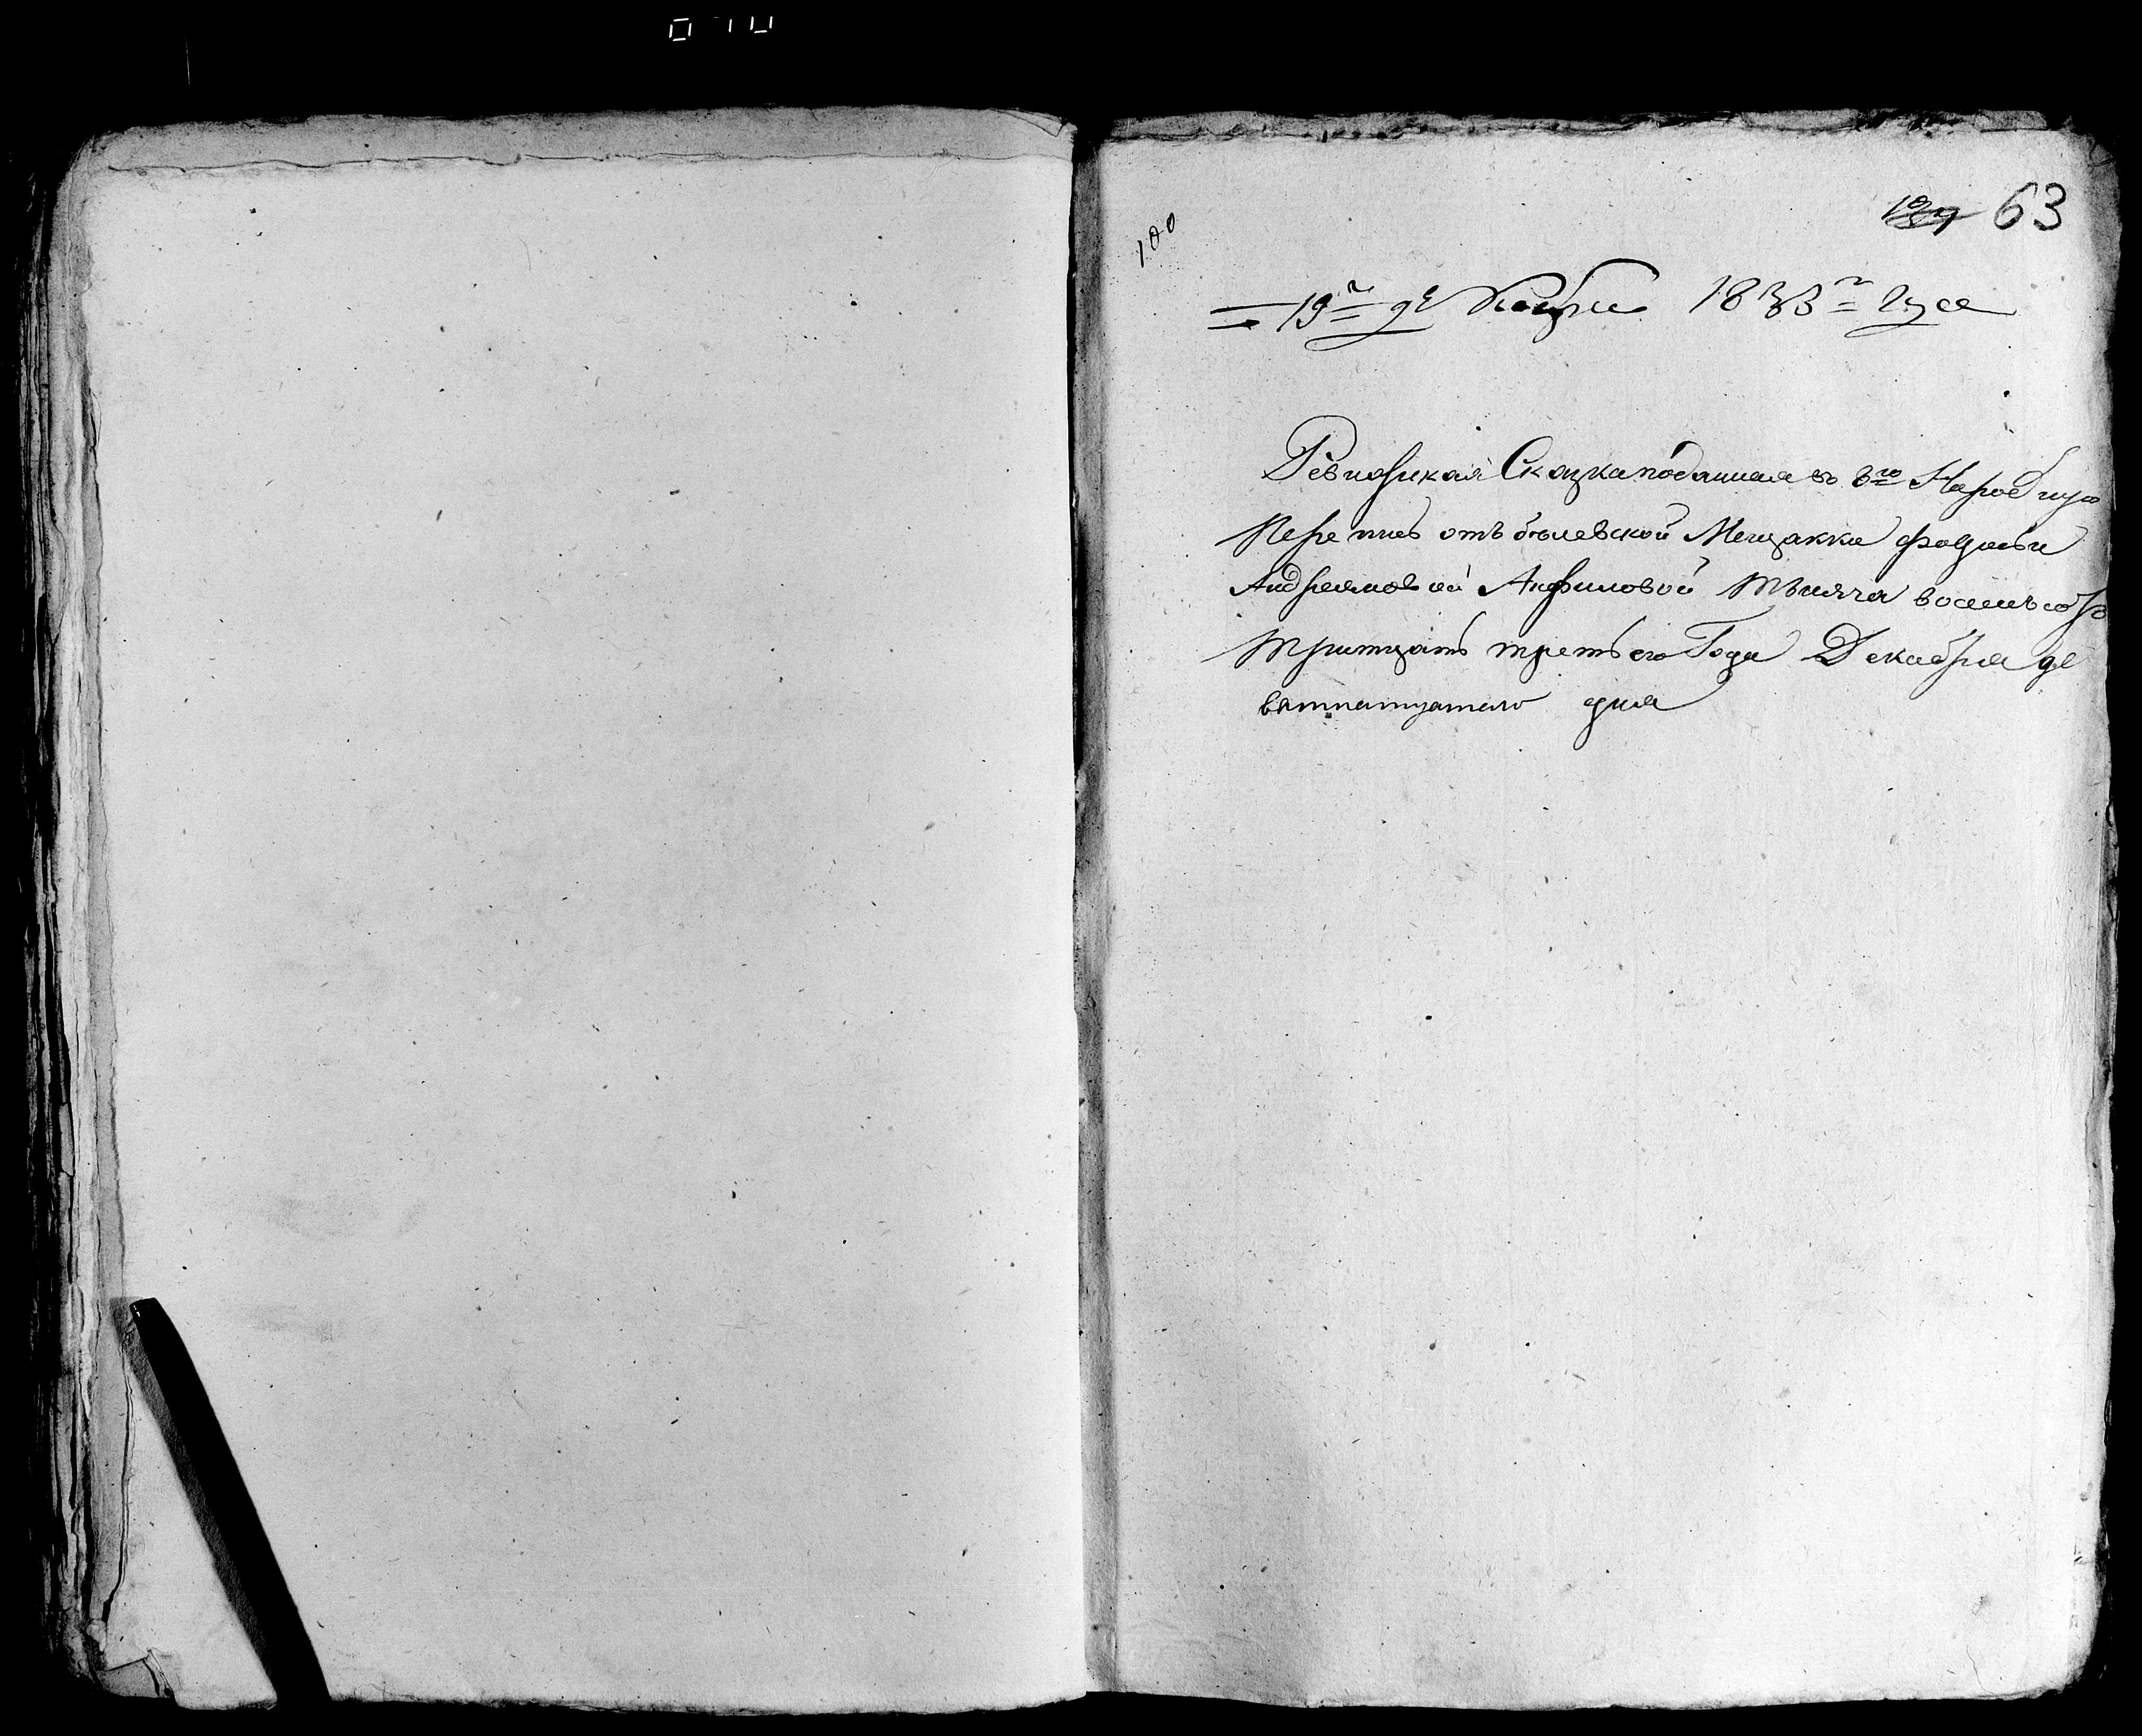 100
189 63
19го декабря 1833го года
Ревижская Сказка поданная во 8ю Народную
Перепись отъ белевской Мещанки федосьи
Андреяновой Анфиловой Тысяча восемьсотъ
Тритцать третьего Года Декабря де
вятнатцатаго дня